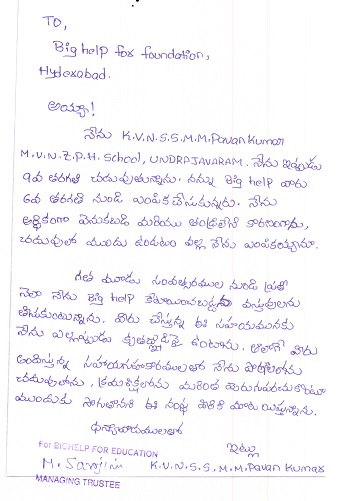 To,
Big help for foundation,
Hyderabad.
అయ్యా!
నేను K.V.N.S.S.M.M.Pavan Kumar
M.V.N.Z.P.H. School, UNDRAJAVARAM. నేను ఇప్పుడు
9వ తరగతి చదువుతున్నాను. నన్ను Big help వారు
6వ తరగతి నుండి ఎంపిక చేసుకున్నారు. నేను
ఆర్థికంగా వెనుకబడి మరియు తండ్రిలేని కారణంగాను,
చదువులో ముందు ఉండటం వల్ల నేను ఎంపికయ్యాను.
గత మూడు సంవత్సరముల నుండి ప్రతి
నెలా నేను Big help కేటాయించబడ్డ వస్తువులను
తీసుకుంటున్నాను. వీరు చేస్తున్న ఈ సహాయమునకు
నేను ఎల్లప్పుడు కృతజ్ఞుడిపై ఉంటాను. అలాగే వీరు
అందిస్తున్న సహాయసహకారములతో నేను
చదువులోను, క్రమశిక్షణలోను మరింత
ముందుకు సాగుతానని ఈ సంస్థ వారికి మాట యిస్తున్నాను.
ధన్యవాదములతో
ఇట్లు
For BIGHELP FOR EDUCATION
K.V.N.S.S.M.M.Pavan Kumar
MANAGING TRUSTEE